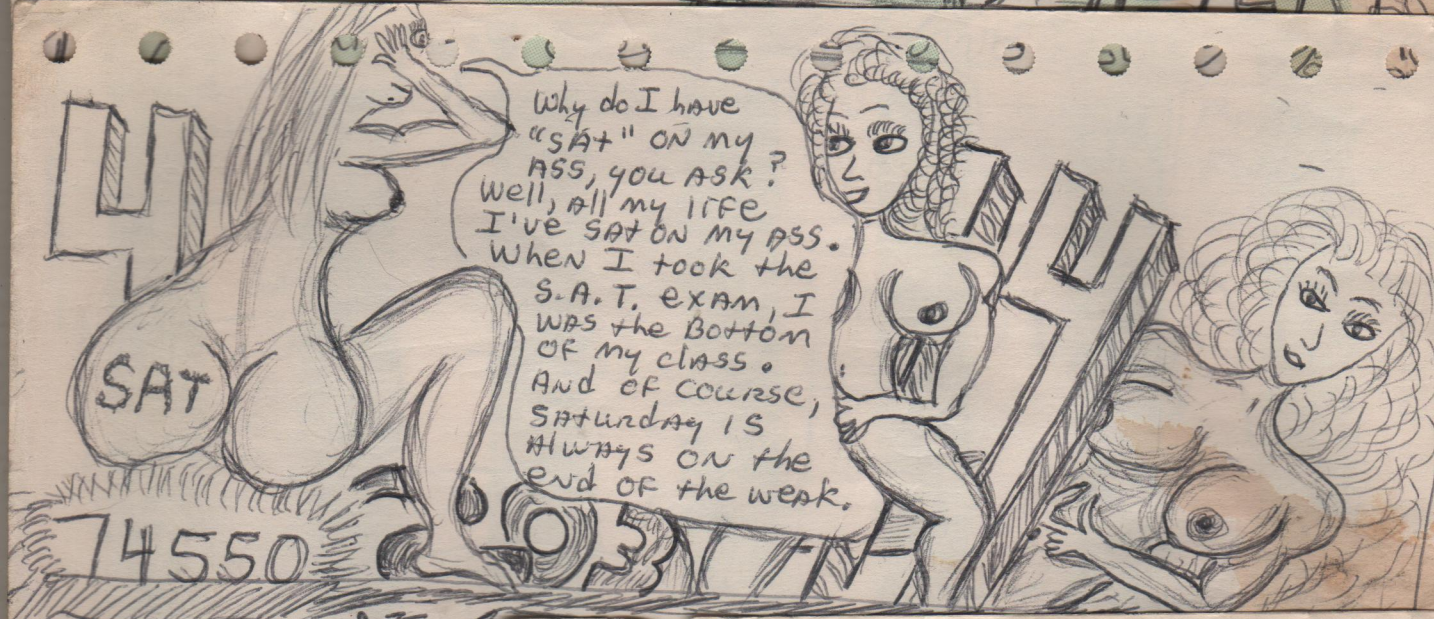 Why do I have
"SAT" ON my
ASS, you ASK?
Well, All my life
I've SAT ON my ASS.
When I took the
S.A.T. exam, I
WAS the Bottom
OF my class.
And of course,
Saturday is
Always on the
end of the weak.
SAT
74550
4
4